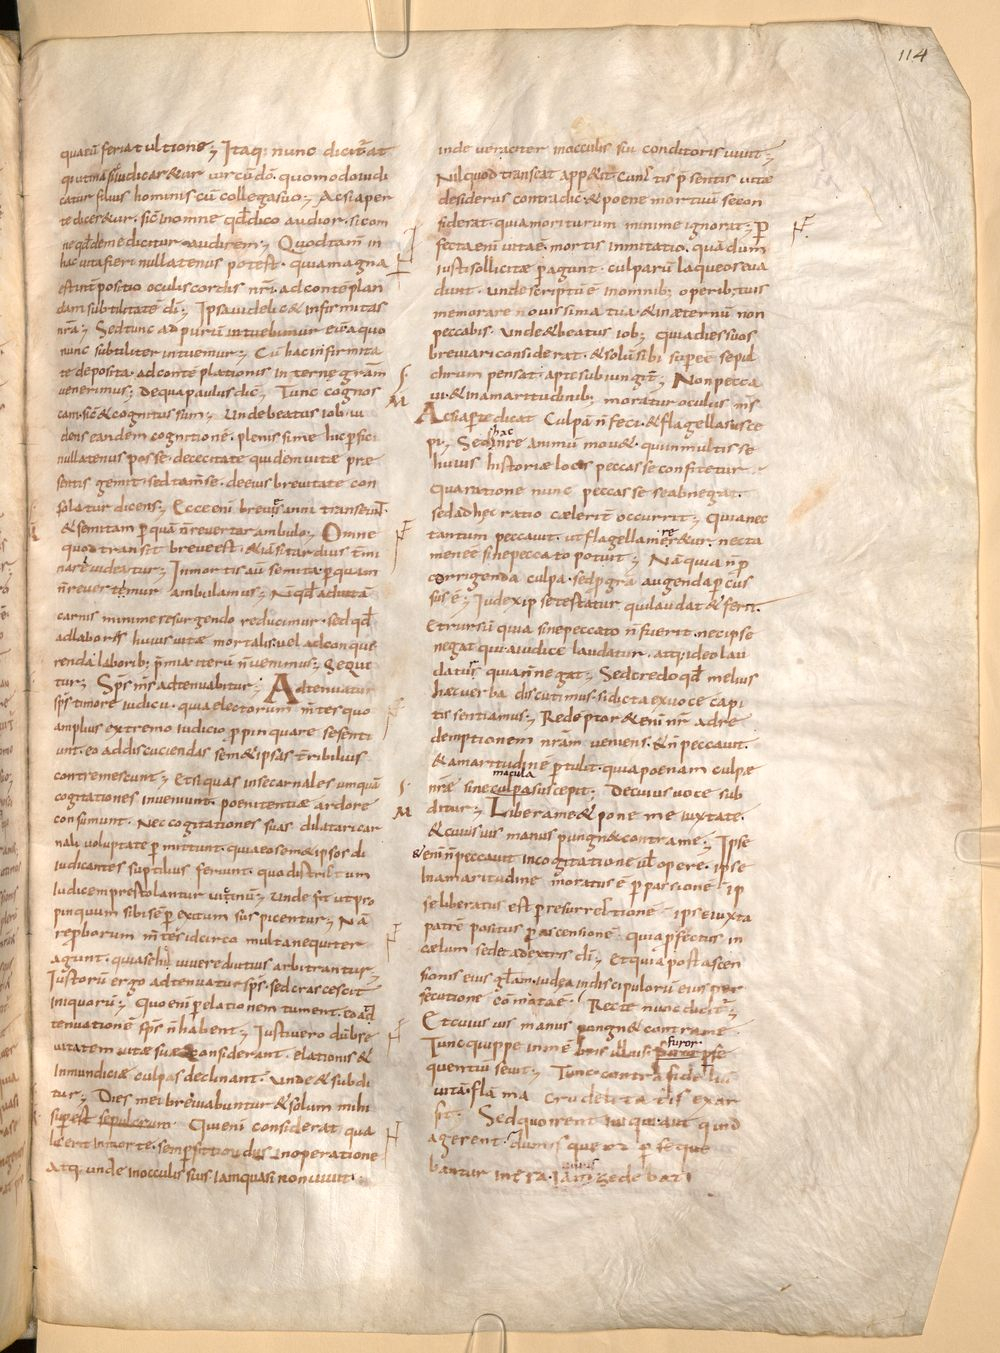 114
quatū feriat ultione; Itaq: nunc dicit̄ at
qui utinā sic iudicar&ur uir cū dō. quomodo iudi
catur filius hominis cū collega suo; Acsi aper
te dicer&ur. sic̄ inomne qd̄ dico audior. si com
ne qd̄ de me dicitur audirem; Quod tam̄ in
hac uita fieri nullatenus potest. quia magna
est inrī positio oculis cordis nr̄i. ad contēplan
dam subtilitatē dī; Ipsa uidelic& infirmitas
nr̄a; Sed tunc ad purū intuebimur eū a quo
nunc subtiliter intuemur; Cū hac infirmita
te deposita. ad contēplationis internę gram̄
uenerimus; De qua paulus dic̄; Tunc cognos
cam. sic̄ & cognitus sum; Unde beatus iob. ui
dens eandem cognitionē. plenissime huc p̄fici
nullatenus posse. de cecitate quidem uitæ præ
sentis gemit. sed tam̄ se. de eius breuitate con
solatur dicens; Ecce eni breues anni transeunt
& semitam p̄ quā n̄ reuertar ambulo; Omne
quod transit breue est. & iā si tardius t̄mi
nare uideatur; In mortis aū semita p̄ quam
n̄ reuertemur ambulamus; N̄ qd̄ ad uitā
carnis minime resurgendo reducimur. sed qd̄
ad labores huius uitæ mortalis. uel ad conque
renda laborib; p̄mia iterū n̄ uenimus; Sequi
tur; Sp̄s m̄s adtenuabitur; Adtenuatur
sp̄s timore iudicii. quia electorum m̄tes quo
amplius extremo iudicio p̄pinquare se senti
unt. eo ad discuciendas sem& ipsas t̄ribilius
contremescunt; Etsi quas inse carnales umquā
cogitationes inueniunt. poenitentiæ ardore
consumunt. Nec cogitationes suas dilatari car
nali uoluptate p̄mittunt. quia eo sem&ipsos di
iudicantes suptilius ferunt. quo districtum
iudicem prestolantur uicinū; Unde fit ut pro
pinquum sibi sēp̄ exitum suspicentur; Nā
reproborum m̄tes idcirco multa nequiter
agunt. quia se hic uiuere diutius arbitrantur;
Iustorū ergo adtenuatur sp̄s. sed crascescit
iniquorū; Quo eni p̄ elationem tument. eo ad
tenuationē sp̄s n̄ habent; Iusti uero dū bre
uitatem uitæ suæ considerant. elationis &
inmundiciæ culpas declinant. Unde & subdi
tur; Dies mei breuiabuntur & solum mihi
sup̄est sepulcrum. Qui eni considerat qua
lis erit in morte. semp̄ fit timidus in operatione
atq; unde in occulis suis. iam quasi non uiuit.
inde ueraciter in occulis sui conditoris uiuit;
Nil quod transeat app&it. cunctis p̄sentis uitæ
desideriis contradic̄. & poene mortuū se con
siderat. quia moriturum minime ignorat; p̄
fecta eni uitaē. mortis inmitatio. quā dum
iusti sollicitæ p̄agunt. culparū laqueos eua
dunt. Unde scriptū ē inomnib; operib; tuis
memorare nouissima tua & inæternū non
peccabis. Unde & beatus iob; quia dies suos
breuiari considerat. & solū sibi sup̄ee sepul
chrum pensat. apte subiungit; Non pecca
ui & inamaritudinib; moratur oculus m̄s
Acsi ap̄te dicat Culpā n̄ feci. & flagella susce
S
M
pi; Sed hac inre animū mou&. quia in multis se
huius historiæ locis peccasse confitetur.
Qua ratione nunc peccasse se abnegat.
sed ad hec ratio cælerit̄ occurrit; Quia nec
tantum peccauit. ut flagella merer&ur. nec ta
men eē sine peccato potuit; Nā quia n̄ p̄
corrigenda culpa. sed p̄ grā augenda p̄cus
sus ē; Iudex ipse testatur qui laudat & ferit.
Et rursū quia sine peccato n̄ fuerit. nec ipse
negat qui a iudice laudatur. atq; ideo lau
datur quia n̄ negat; Sed credo qd̄ melius
hæc uerba discutimus. si dicta ex uoce capi
tis sentiamus; Redēptor & eni nr̄ ad re
demptionem nr̄am ueniens. & n̄ peccauit.
& amaritudinē p̄tulit. quia poenam culpæ
nr̄æ sine culpa macula suscepit; De cuius uoce sub
S
M
ditur; Libera me & pone me iuxta te.
& cuius uis manus pungn& contra me; Ipse
& eni n̄ peccauit in cogitatione ul̄ opere. ipse
in amaritudine moratus ē p̄ passionē. ip
se liberatus est p̄ resurrectionē. ipse iuxta
patrē positus p̄ ascensionē. quia p̄fectus in
cælum sedet ad extris dī; Et quia post ascen
sionis eius glam. iudea in discipulorū eius per
secutione cōmota ē. Recte nunc dicit̄;
Et cuius uis manus pungn& contra me.
Tunc quippe in mēbris illius. furor p̄se
quentiū seuit; Tunc contra fideliū
uitā. flāma crudelitatis exar
sit. Sed quo irent iniqui. aut quid
agerent. dum is quem p̄seque
bantur in terra. iam sedebat